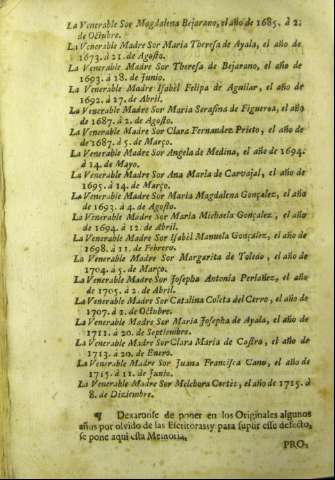 La Venerable Sor Magdalena Bejarano, el año de 1685. à 2.
de Octubre.
La Venerable Madre Sor Maria Theresa de Ayala, el año de
1673. à 21. de Agosto.
La Venerable Madre Sor Theresa de Bejarano, el año de
1693. à 18. de Junio.
La Venerable Madre Isabèl Felipa de Aguilar, el año de
1692. à 17. de Abril.
La Venerable Madre Sor Maria Serafina de Figueroa, el año
de 1687. à 2. de Agosto.
La Venerable Madre Sor Clara Fernandez Prieto, el año de
de 1687. à 5. de Março.
La Venerable Madre Sor Angela de Medina, el año de 1694.
à 14. de Mayo.
La Venerable Madre Sor Ana Maria de Carvajal, el año de
1695. à 14. de Março.
La Venerable Madre Sor Maria Magdalena Gonçalez, el año de
1693. à 4. de Agosto.
La Venerable Madre Sor Maria Michaela Gonçalez, el año
de 1694. à 12. de Abril.
La Venerable Madre Sor Isabèl Manuela Gonçalez, el año de
1698. à 11. de Febrero.
La Venerable Madre Sor Margarita de Toledo, el año de
1704. à 5. de Março.
La Venerable Madre Sor Josepha Antonia Perlañez, el año
de 1705. à 2. de Abril.
La Venerable Madre Sor Catalina Coleta del Cerro, el año de
1707. à 2. de Octubre.
La Venerable Madre Sor Maria Josepha de Ayala, el año de
1711. à 20. de Septiembre.
La Venerable Madre Sor Clara Maria de Castro, el año de
1713. à 20. de Enero.
La Venerable Madre Sor Juana Francisca Cano, el año de
1715. à 11. de Junio.
La Venerable Madre Sor Melchora Cortès, el año de 1715. à
8. de Diziembre.
¶ Dexaronse de poner en los Originales algunos
años por olvido de las Escritoras; y para suplir esse defecto,
se pone aqui esta Memoria.
PRO-